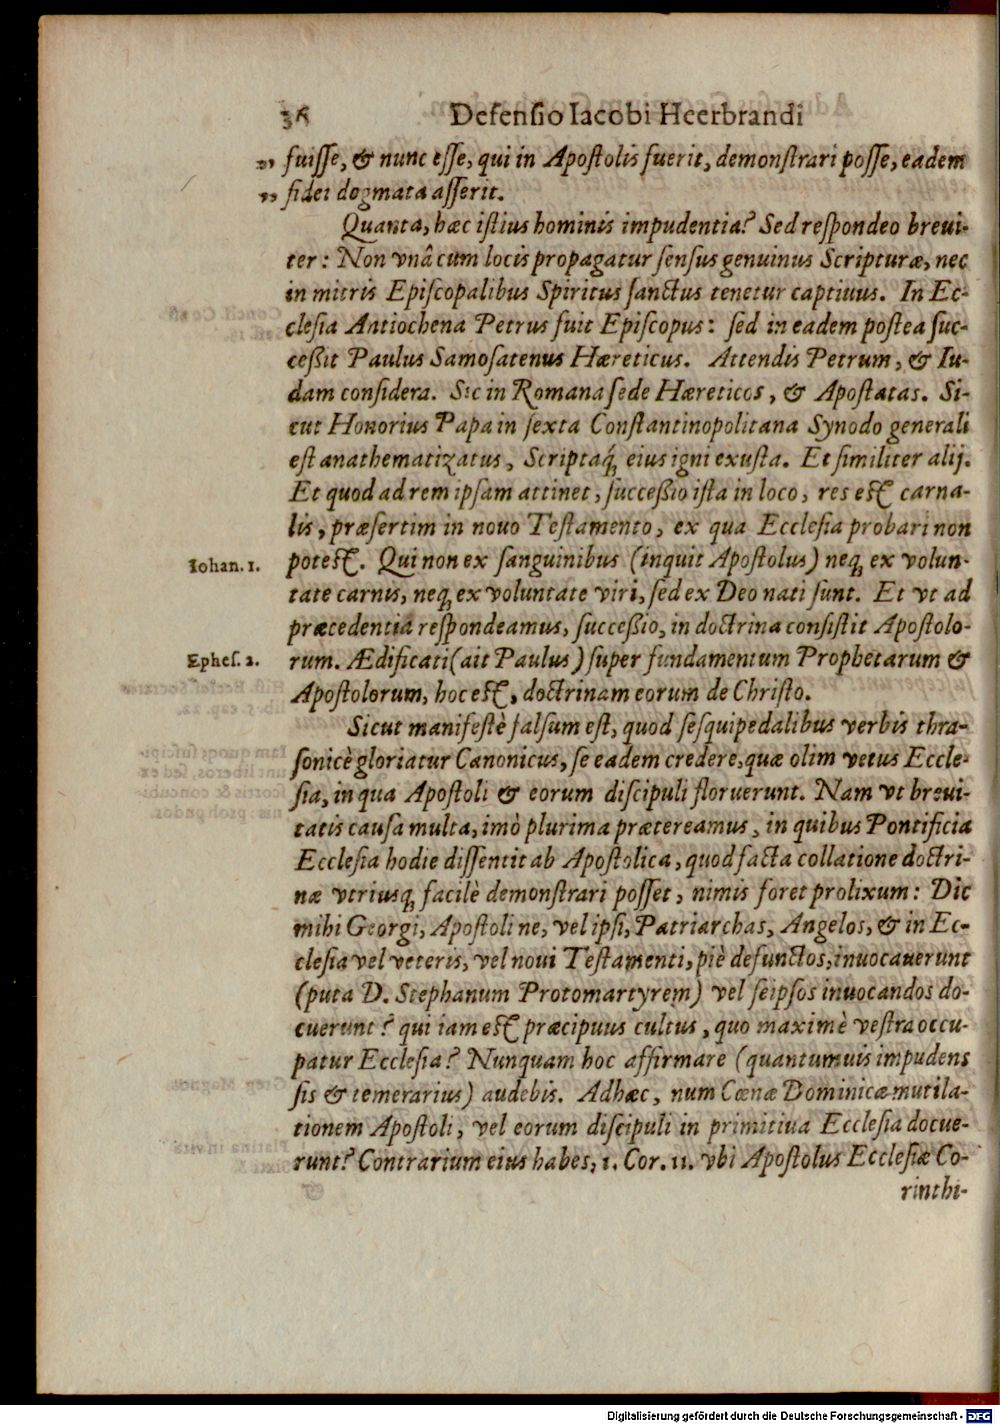 36 Defensio Iacobi Heerbrandi
„ fuiſſe, & nunc eſſe, qui in Apoſtolis fuerit, demonſtrari poſſe, eadem
„ fidei dogmata aſſerit.
Quanta, hæc iſtius hominis impudentia? Sed reſpondeo brevi-
ter: Non vnâ cum locis propagatur ſenſus genuinus Scripturæ, nec
in mitris Epiſcopalibus Spiritus ſanctus tenetur captiuus. In Ec-
cleſia Antiochena Petrus fuit Epiſcopus: ſed in eadem poſtea ſuc-
ceßit Paulus Samoſatenus Hæreticus. Attendis Petrum, & Iu-
dam conſidera. Sic in Romana ſede Hæreticos, & Apoſtatas. Si-
cut Honorius Papa in ſexta Conſtantinopolitana Synodo generali
eſt anathematizatus, Scriptaq́; eius igni exuſta. Et ſimiliter alij.
Et quod ad rem ipſam attinet, ſucceßio iſta in loco, res eſt carna-
lis, præſertim in nouo Teſtamento, ex qua Eccleſia probari non
Iohan. 1. poteſt. Qui non ex ſanguinibus (inquit Apoſtolus) neq; ex volun-
tate carnis, neq; ex voluntate viri, ſed ex Deo nati ſunt. Et vt ad
præcedentia reſpondeamus, ſucceßio, in doctrina conſiſtit Apoſtolo-
Epheſ. 2. rum. Ædificati (ait Paulus) ſuper fundamentum Prophetarum &
Apoſtolorum, hoc eſt, doctrinam eorum de Chriſto.
Sicut manifeſtè falſum eſt, quod ſeſquipedalibus verbis thra-
ſonicè gloriatur Canonicus, ſe eadem credere, quæ olim vetus Eccle-
ſia, in qua Apoſtoli & eorum diſcipuli floruerunt. Nam vt brevi-
tatis cauſa multa, imò plurima prætereamus, in quibus Pontificia
Eccleſia hodie diſſentit ab Apoſtolica, quod facta collatione doctri-
næ vtriusq; facilè demonſtrari poſſet, nimis foret prolixum: Dic
mihi Georgi, Apoſtoli ne, vel ipſi, Patriarchas, Angelos, & in Ec-
cleſia vel veteris, vel noui Teſtamenti, piè defunctos, inuocauerunt
(puta D. Stephanum Protomartyrem) vel ſeipſos inuocandos do-
cuerunt? qui iam eſt præcipuus cultus, quo maximè veſtra occu-
patur Eccleſia? Nunquam hoc affirmare (quantumuis impudens
ſis & temerarius) audebis. Adhæc, num Cœnæ Dominicæ mutila-
tionem Apoſtoli, vel eorum diſcipuli in primitiua Eccleſia docue-
runt? Contrarium eius habes, 1. Cor. 11. vbi Apoſtolus Eccleſiæ Co-
rinthi-
Digitalisierung gefördert durch die Deutsche Forschungsgemeinschaft - DFG